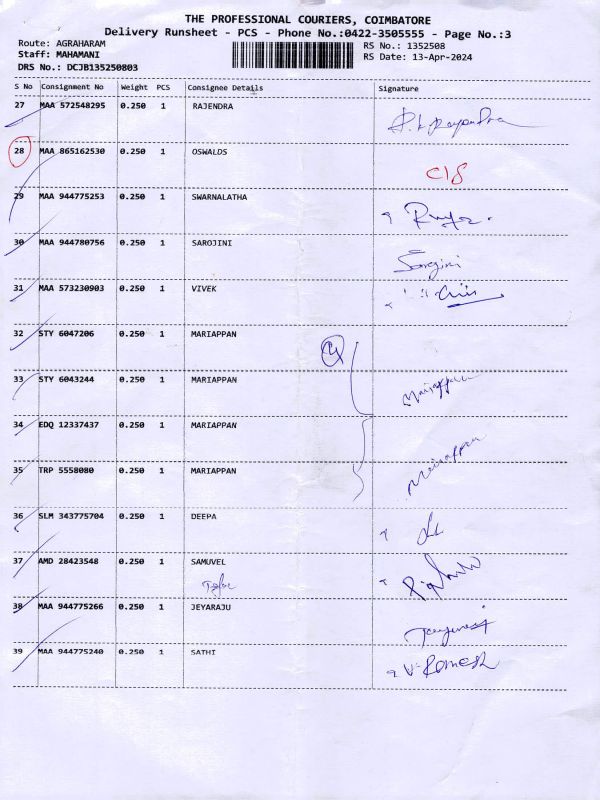 THE PROFESSIONAL COURIERS, COIMBATORE
Delivery Runsheet - PCS - Phone No.:0422-3505555 - Page No.:3
Route: AGRAHARAM RS No.: 1352508
Staff: MAHAMANI RS Date: 13-Apr-2024
DRS No.: DCJB135250803
S No Consignment No Weight PCS Consignee Details Signature
27 MAA 572548295 0.250 1 RAJENDRA
28 MAA 865162530 0.250 1 OSWALDS
29 MAA 944775253 0.250 1 SWARNALATHA
30 MAA 944780756 0.250 1 SAROJINI
31 MAA 573230903 0.250 1 VIVEK
32 STY 6047206 0.250 1 MARIAPPAN 4
33 STY 6043244 0.250 1 MARIAPPAN Mariappan
34 EDQ 12337437 0.250 1 MARIAPPAN
35 TRP 5558080 0.250 1 MARIAPPAN Mariappan
36 SLM 343775704 0.250 1 DEEPA
37 AMD 28423548 0.250 1 SAMUVEL
38 MAA 944775266 0.250 1 JEYARAJU
39 MAA 944775240 0.250 1 SATHI V. Ramesh